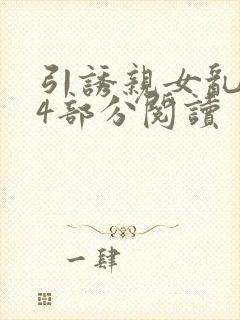 引誘親女亂
4部分閱讀
一肆